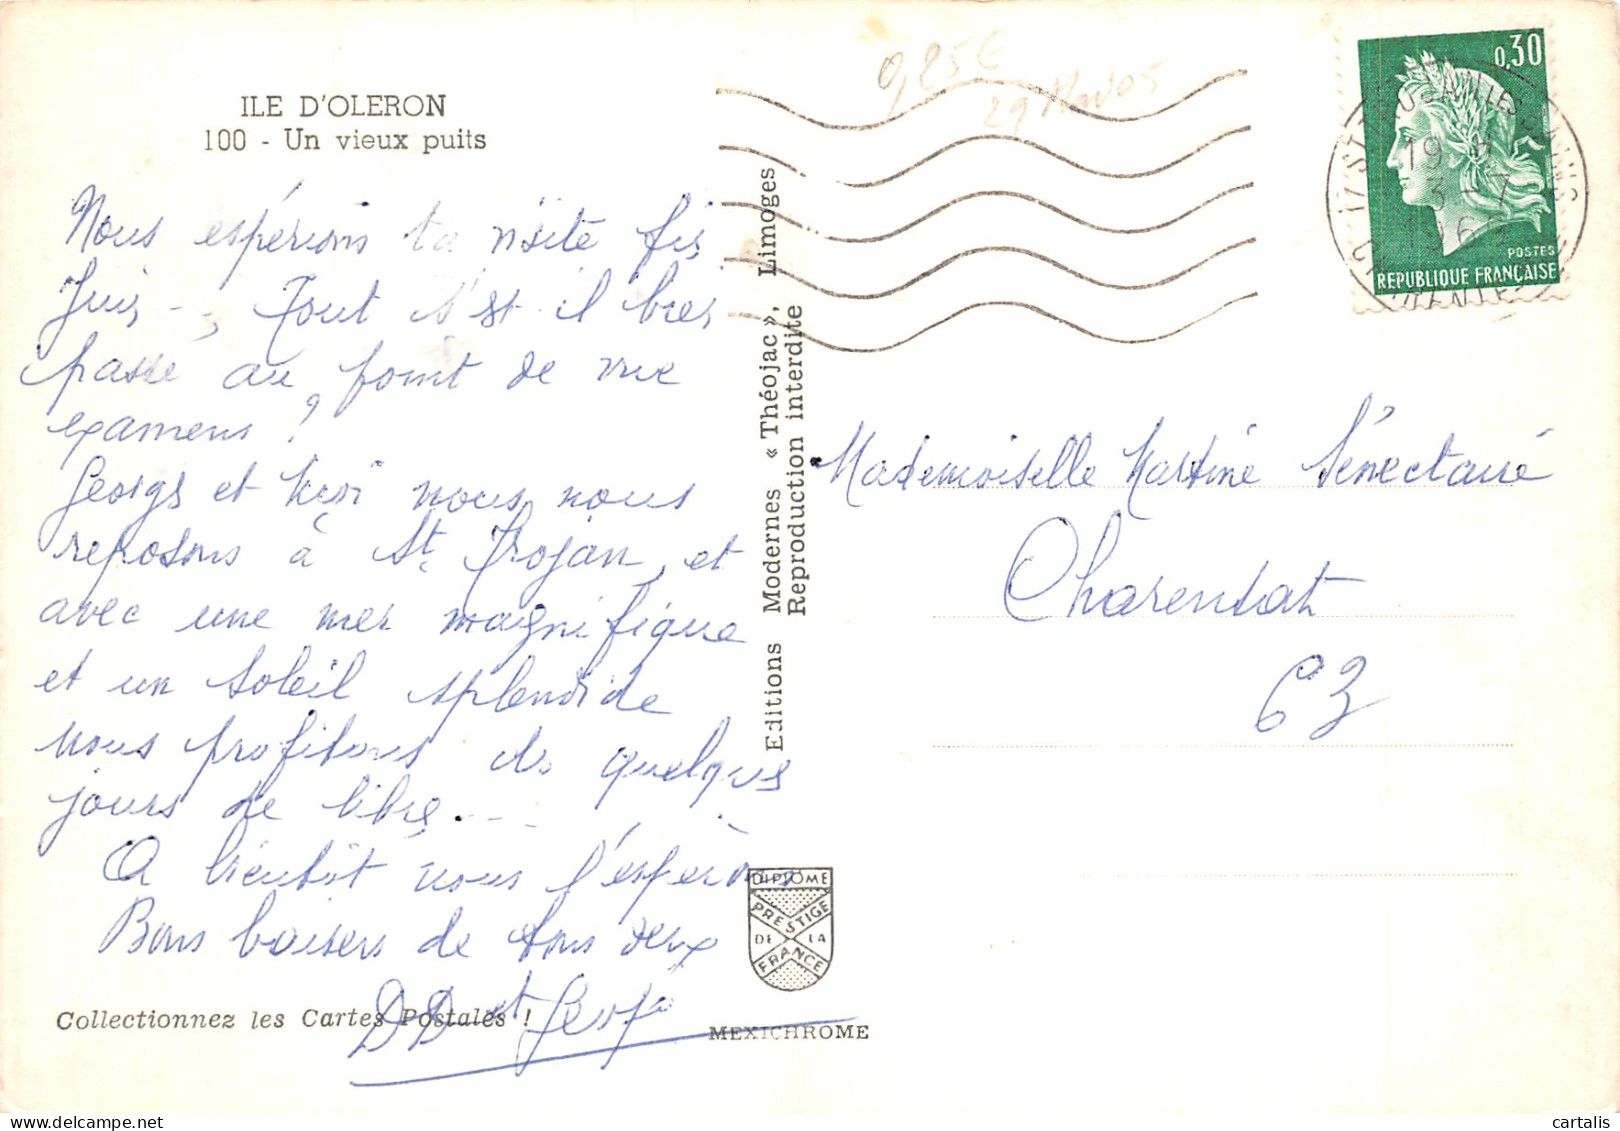 ILE D'OLERON
100 - Un vieux puits
Nous espérions ta visite fin
Juin --, Tout s'est il bien
passé au point de vue
examens ?
Georgs et moi nous nous
reposons à St. Trojan, et
avec une mer magnifique
et un soleil splendide
nous profitons de quelques
jours de libre...
A bientôt nous l'espérons
Bons baisers de tous deux
DD et Georg
Collectionnez les Cartes Postales !
Editions Modernes « Théojac », Limoges
Reproduction interdite
DIPLOME
PRESTIGE
DE LA
FRANCE
MEXICHROME
0,85€
29
0,30
POSTES
REPUBLIQUE FRANÇAISE
17 ST
19 H
3 - 7
196
Mademoiselle Martine Sénectaire
Charensat
63
cartalis